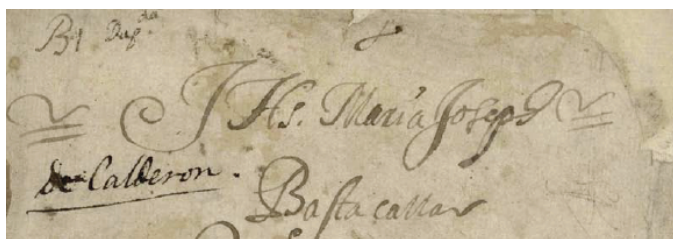 JHs. Maria Joseph
de Calderon.
Basta callar